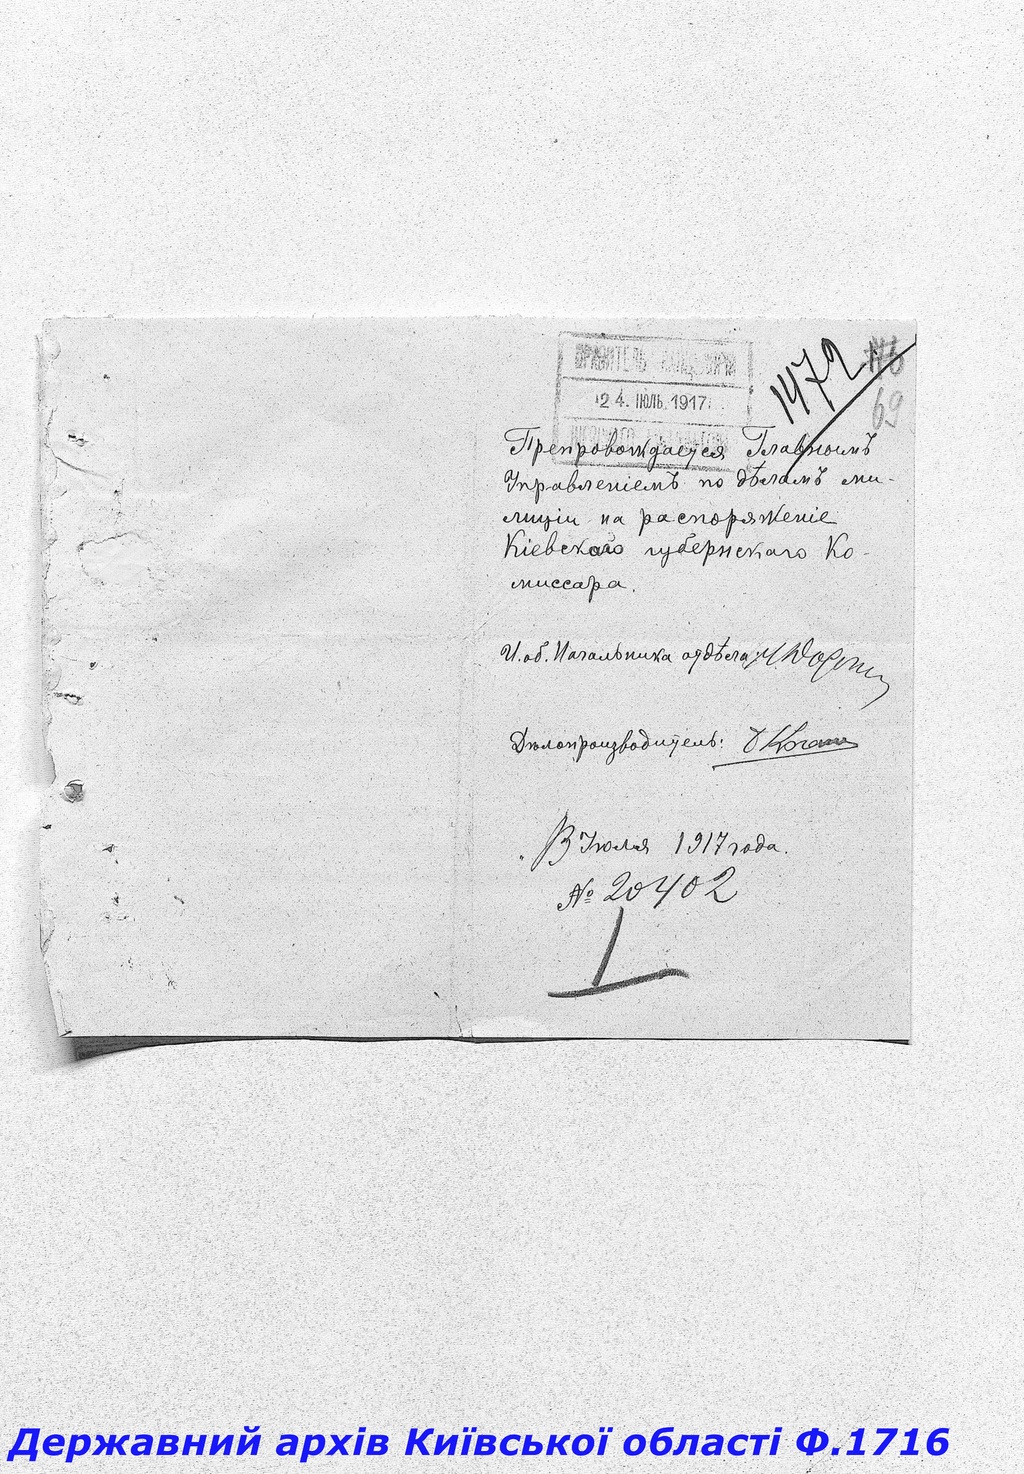 ПРАВИТЕЛЬ КАНЦЕЛЯРИИ
24. ІЮЛЬ. 1917
1472
69
Препровождается Главнымъ
Управленіемъ по дѣламъ ми-
лиціи на распоряженіе
Кіевскаго губернскаго Ко-
миссара.
И. об. Начальника отдѣла
Дѣлопроизводитель:
Іюля 1917 года.
№ 20402
Державний архів Київської області Ф.1716